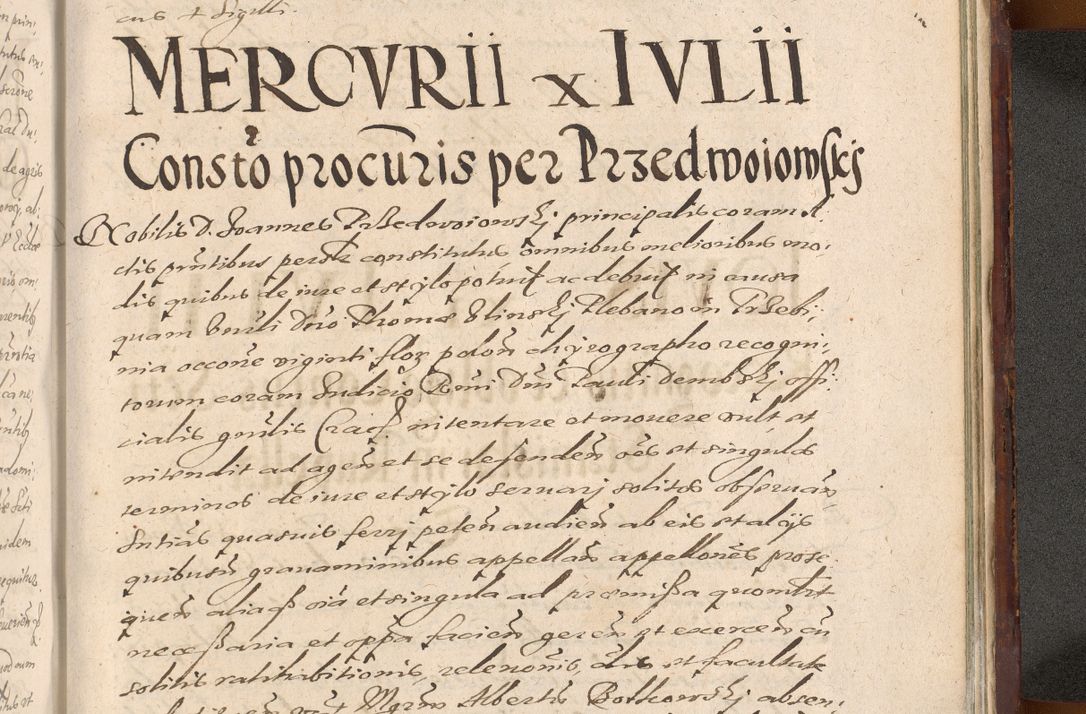 cus et Sigilli.
MERCVRII x IVLII
Constõ procuris per Przedwoiowskj
Nobilis D. Joannes Przedwoiowskj principalis coram A:
ctis pñtibus persōr constitutus omnibus melioribus mo:
dis quibus de iure et stylo potuit ac debuit in causa
quam Vnrli Dño Thomæ Vlinskj Plebano in Przebi:
nia occōne viginti flor polōn chyrographo recogni:
torum coram Judicio Rmi Dñi Pauli Dembskj offi:
cialis gñilis Crac: intentare et mouere vult et
intendit ad ageñ et se defendeñ oēs et singulos
terminos de iure et stylo seruarj solitos obseruañ
Sntiãs quasuis ferrj peteñ audieñ ab eis et alijs
quibusũ grauaminibus appellañ appellonēs prose:
queñ aliaq oīa et singula ad præmissa quomlīt
necessaria et oppña facieñ gereñ et exerceñ cũ
solitis ratihabitionis, releuonis, cælis et facultate
Mgrm Albertũ Botkowskj absen: